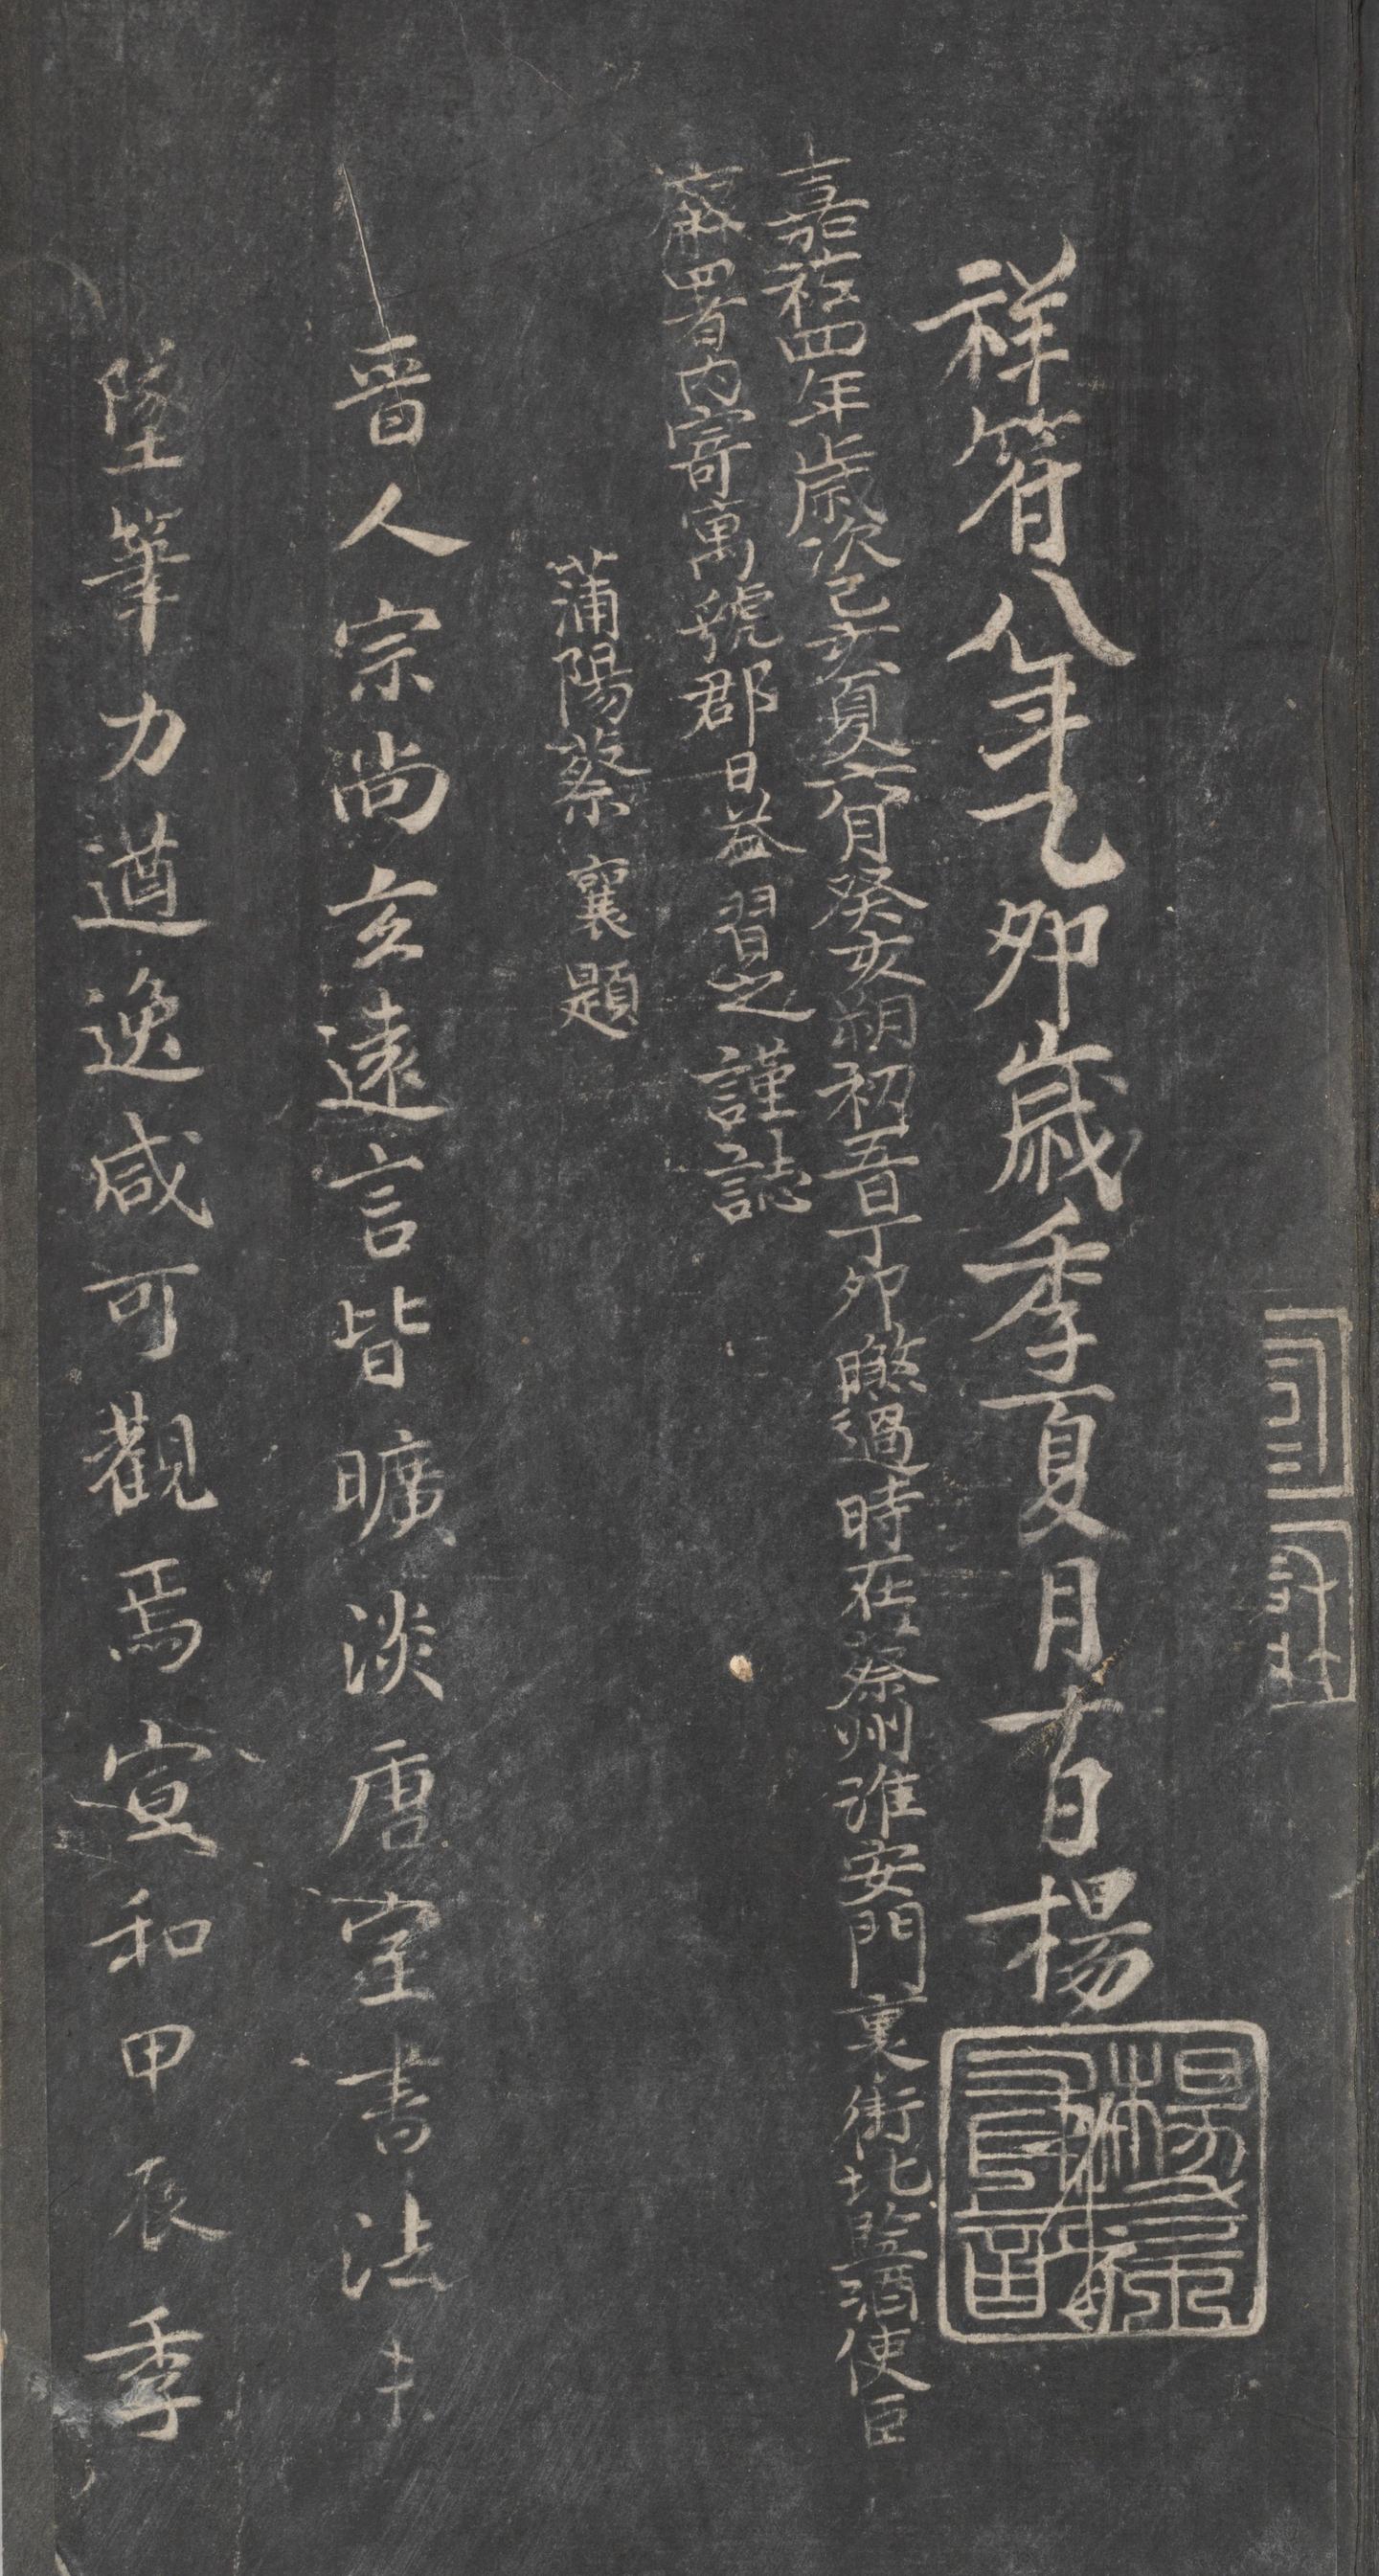 祥符八年乙卯歲季夏月十日楊
嘉祐四年歲次己亥夏六月癸亥朔初五日丁卯瞧過時在蔡州淮安門裏街北監酒使臣
廨署内寄寓號郡日益習之謹誌
蒲陽蔡襄題
晉人宗尚玄遠言皆曠淡唐室書法
墜筆力遒逸咸可觀焉宣和甲辰季